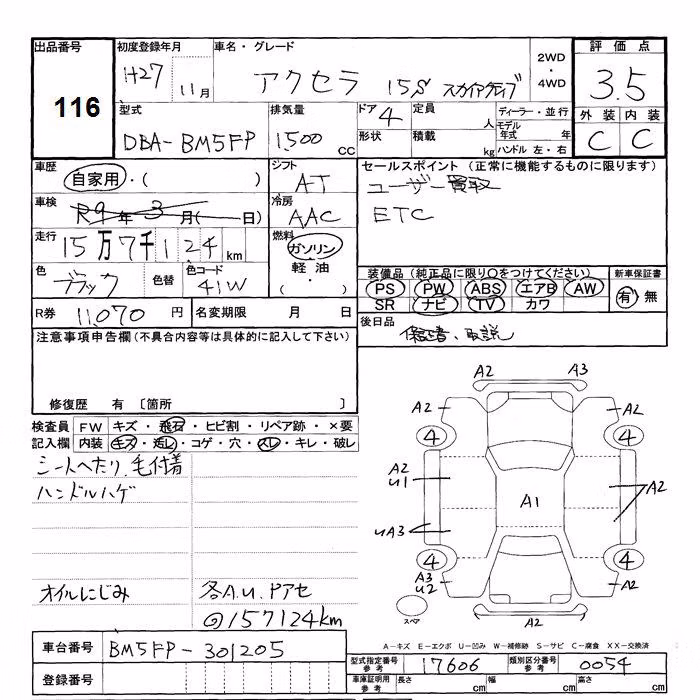 出品番号
116
初度登録年月
H27 11月
車名・グレード
アクセラ 15S スカイアクティブ
2WD
・
4WD
評価点
3.5
外装 内装
C C
型式
DBA-BM5FP
排気量
1500 CC
ドア 4
形状
定員 人
積載 kg
ディーラー・並行
モデル年式 年
ハンドル 左・右
車歴
自家用・( )
車検
R9年3月( 日)
走行
15万7千124km
色
ブラック
色替
色コード
41W
シフト
AT
冷房
AAC
燃料
ガソリン
軽油
( ・ )
セールスポイント(正常に機能するものに限ります)
ユーザー買取
ETC
装備品(純正品に限り○をつけてください)
PS PW ABS エアB AW
SR ナビ TV カワ
新車保証書
有 無
R券 11,070 円
名変期限 月 日
後日品
保証書、取説
注意事項申告欄(不具合内容等は具体的に記入して下さい)
修復歴 有 〔箇所 〕
検査員記入欄
FW キズ・飛石・ヒビ割・リペア跡・×要
内装 キズ・汚レ・コゲ・穴・スレ・キレ・破レ
シートヘたり、毛付着
ハンドルハゲ
オイルにじみ
各A.U.Pアセ
◎157124km
A2 A3
A2 A2
4 4
A2
U1
A1
A2
UA3
4 4
A3
U2
A2
スペア
A2
A-キズ E-エクボ U-凹み W-補修跡 S-サビ C-腐食 XX-交換済
車台番号 BM5FP-301205
登録番号
型式指定番号 参考 17606
類別区分番号 参考 0054
車庫証明用 参考 長さ cm 幅 cm 高さ cm